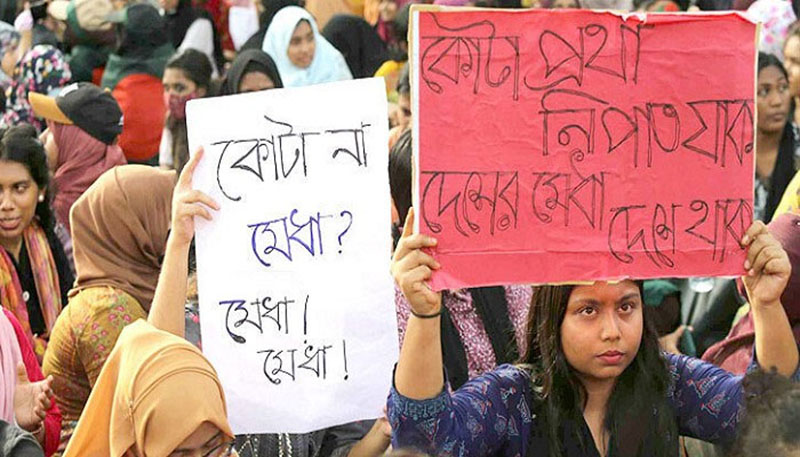 কোটা না
মেধা?
মেধা!
মেধা!
কোটা প্রথা
নিপাত যাক
দেশের মেধা
দেশে থাক